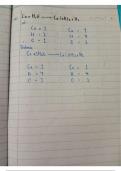 Ca + H₂O → Ca(OH)₂ + H₂
Ca = 1 Ca = 1
H = 2 H = 4
O = 1 O = 2
Balance
Ca + 2H₂O → Ca(OH)₂ + H₂
Ca = 1 Ca = 1
H = 4 H = 4
O = 2 O = 2